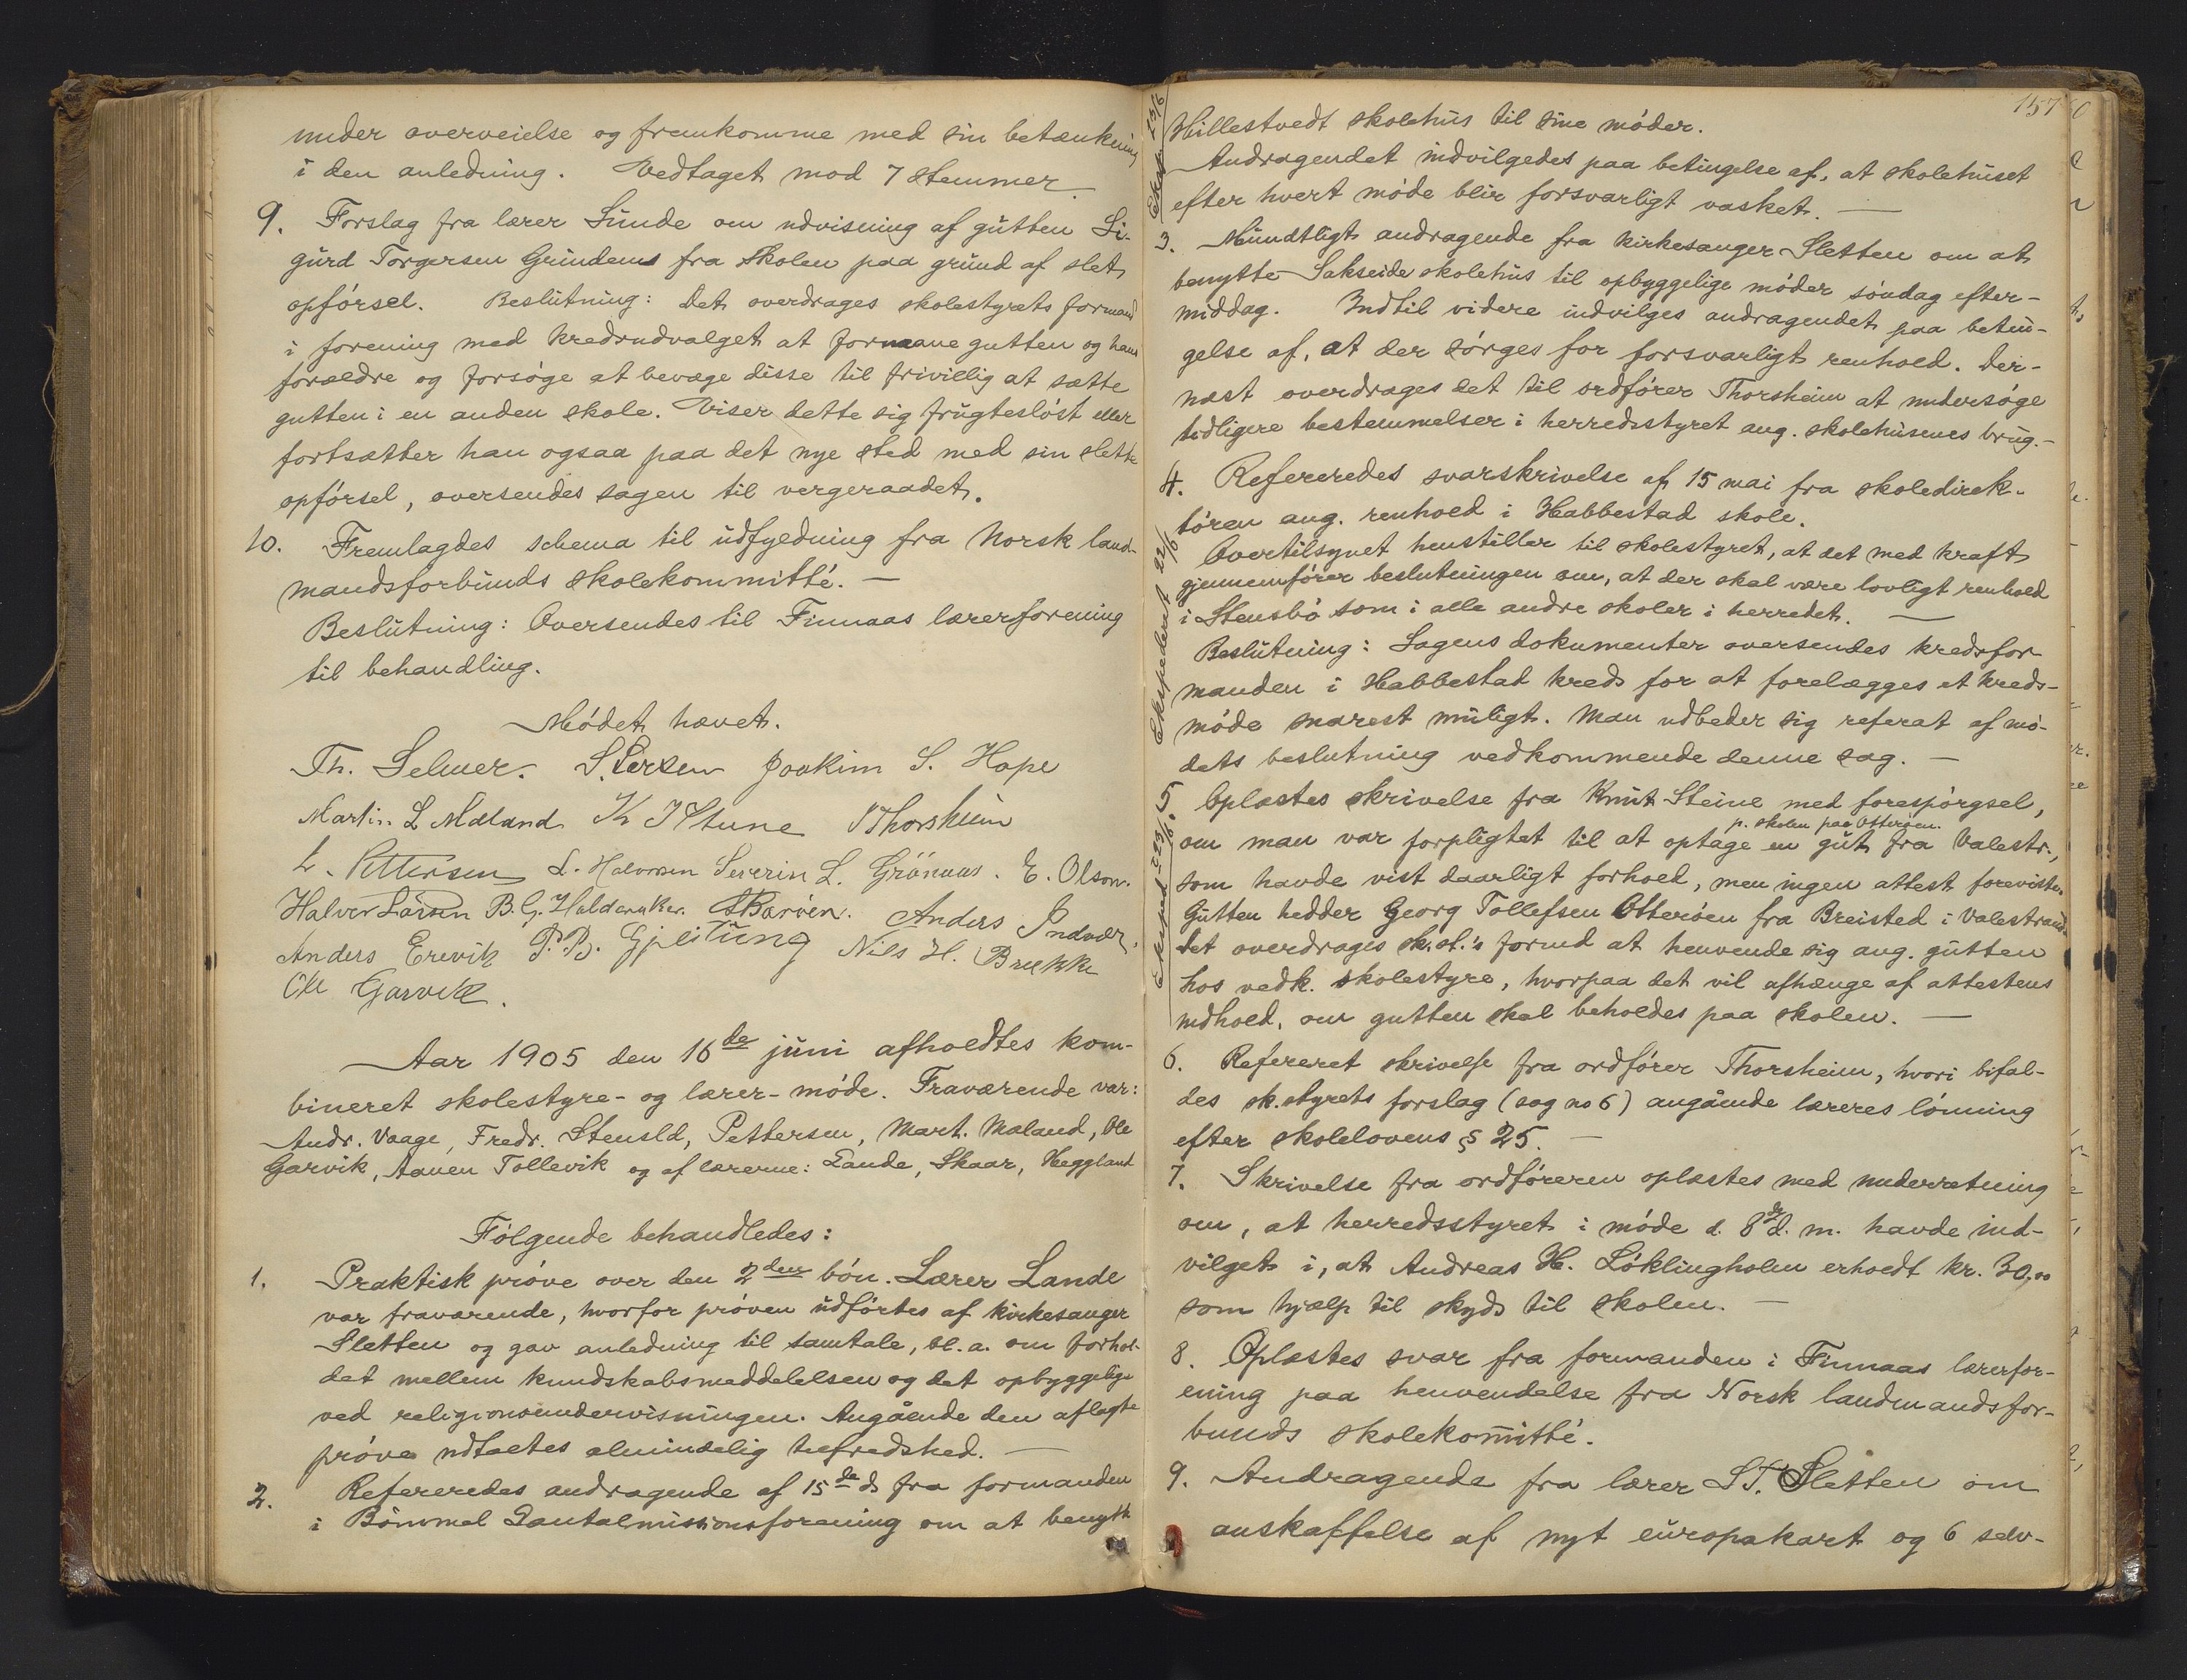 under overveielse og fremkomme med sin betænkning
i den anledning. Vedtaget mod 7 stemmer
9. Forslag fra lærer Sunde om udvisning af gutten Si-
gurd Torgersen Grindem fra skolen paa grund af slet
opførsel. Beslutning: Det overdrages skolestyrets formand
i forening med kredsudvalget at formane gutten og hans
forældre og forsøge at bevæge disse til frivillig at sætte
gutten i en anden skole. Viser dette sig frugtesløst eller
fortsætter han ogsaa paa det nye sted med sin slette
opførsel, oversendes sagen til vergeraadet.
10. Fremlagdes schema til udfyldning fra Norsk land-
mandsforbunds skolekommitté. —
Beslutning: Oversendes til Finnaas lærerforening
til behandling.
Mødet hævet.
Th. Selmer. S. Larsen Joakim S. Hope
Martin L Mæland K J Stune Thorsheim
L. Pettersen L. Halvorsen Severin L. Grönnaas. E. Olson.
Halvor Larsen B. G. Holderaker. Anders Indvær.
Anders Erevik P. B. Gjeitung Nils H. Brekke
Ole Garvik.
Aar 1905 den 16de juni afholdtes kom-
bineret skolestyre- og lærer-møde. Fraværende var:
Andr. Vaage, Fredr. Stensld, Pettersen, Mart. Mæland, Ole
Garvik, Aamen Tollevik og af lærerne: Lande, Skaar, Heggland
Følgende behandledes:
1. Praktisk prøve over den 2den bøn. Lærer Lande
var fraværende, hvorfor prøven udførtes af kirkesanger
Sletten og gav anledning til samtale, bl. a. om forhol-
det mellem kundskabsmeddelelsen og det opbyggelige
ved religionsundervisningen. Angående den aflagte
prøve udtaltes almindelig tilfredshed. —
2. Refereredes andragende af 15de ds fra formanden
i Bømmel Santalmissionsforening om at benytte
157
Eksp. 23/6
Hillestvedt skolehus til sine møder.
Andragendet indvilgedes paa betingelse af, at skolehuset
efter hvert møde blir forsvarligt vasket. —
3. Mundtligt andragende fra kirkesanger Sletten om at
benytte Sakseide skolehus til opbyggelige møder søndag efter-
middag. Indtil videre indvilges andragendet paa betin-
gelse af, at der sørges for forsvarligt renhold. Der-
næst overdrages det til ordfører Thorsheim at undersøge
tidligere bestemmelser i herredsstyret ang. skolehusenes brug. -
4. Refereredes svarskrivelse af 15 mai fra skoledirek-
tøren ang. renhold i Habbestad skole.
Ekspederet 22/6
Overtilsynet henstiller til skolestyret, at det med kraft
gjennemfører beslutningen om, at der skal være lovligt renhold
i Stensbø som i alle andre skoler i herredet. —
Beslutning: Sagens dokumenter oversendes kredsfor-
manden i Habbestad kreds for at forelægges et kreds-
møde snarest muligt. Man udbeder sig referat af mø-
dets beslutning vedkommende denne sag. —
Eksped. 23/6.
5. Oplæstes skrivelse fra Knut Steine med forespørgsel,
p. skolen paa Otterøen.
om man var forpligtet til at optage en gut fra Valestr.,
som havde vist daarligt forhold, men ingen attest foreviste.
Gutten hedder Georg Tollefsen Otterøen fra Breisted i Valestrand.
Det overdrages sk. st.'s formd at henvende sig ang. gutten
hos vedk. skolestyre, hvorpaa det vil afhænge af attestens
indhold, om gutten skal beholdes paa skolen. —
6. Refereret skrivelse fra ordfører Thorsheim, hvori bifal-
des sk.styrets forslag (sag no 6) angående læreres lønning
efter skolelovens § 25. —
7. Skrivelse fra ordføreren oplæstes med underretning
om, at herredsstyret i møde d. 8de d. m. havde ind-
vilget i, at Andreas H. Løklingholm erholdt kr. 30,00
som hjælp til skyds til skolen. —
8. Oplæstes svar fra formanden i Finnaas lærerfor-
ening paa henvendelse fra Norsk landmandsfor-
bunds skolekomitté.
9. Andragende fra lærer S T. Sletten om
anskaffelse af nyt europakart og 6 selv-